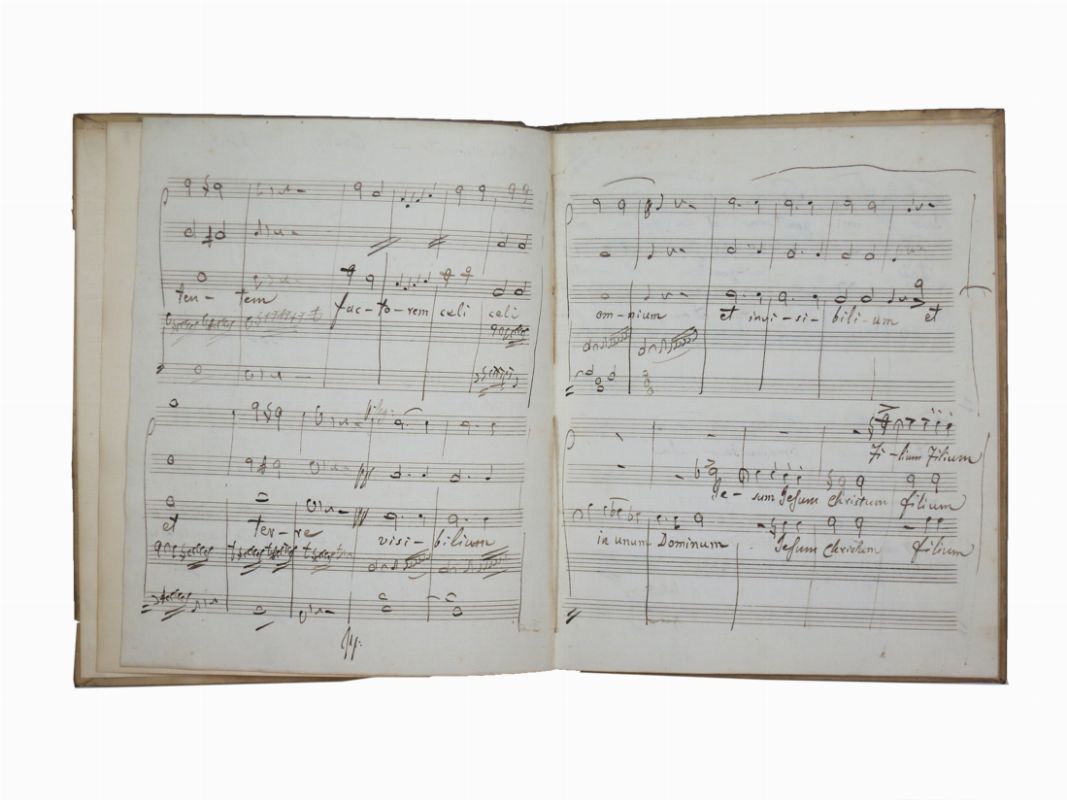 ten - tem fac - to - rem celi celi
et ter - re visi - bilium
om - nium et invi - si - bili - um et
Fi - lium Filium
Je - sum Jesum Christum filium
in unum Dominum Jesum Christum filium